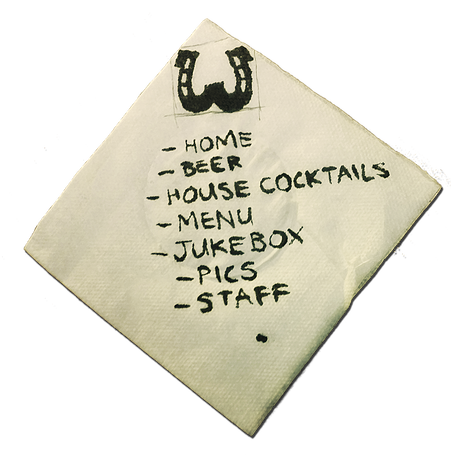 - HOME
- BEER
- HOUSE COCKTAILS
- MENU
- JUKEBOX
- PICS
- STAFF